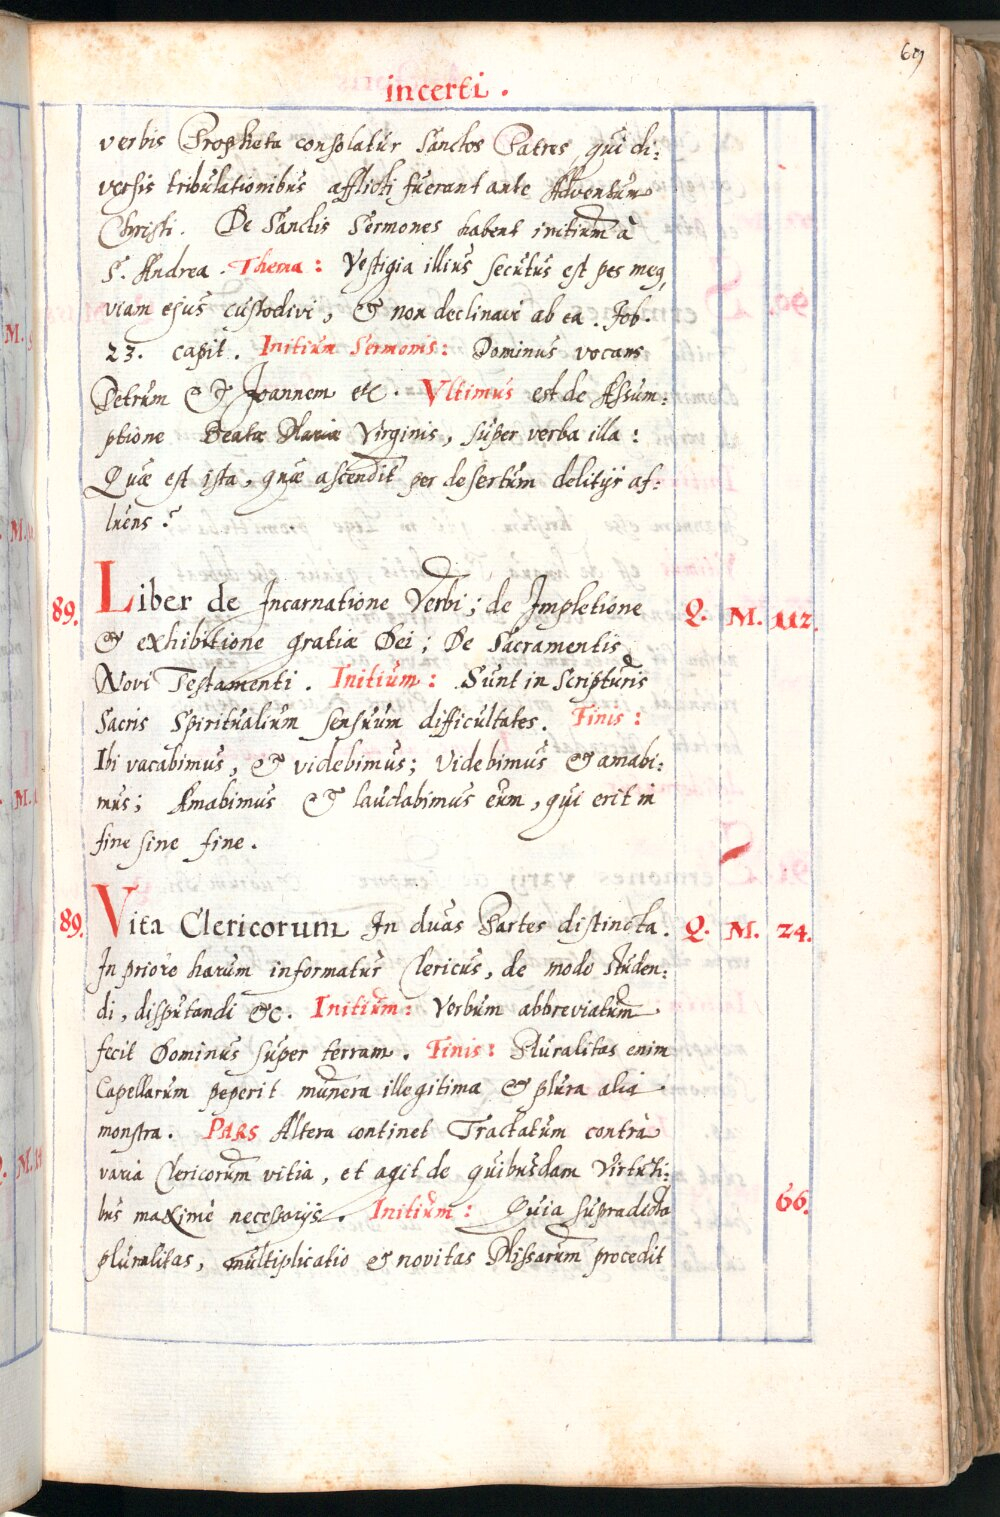 69
incerti.
verbis Propheta consolatur Sanctos Patres, qui di:
versis tribulationibus afflicti fuerant ante Adventum
Christi. De Sanctis Sermones habent initium à
S. Andrea. Thema: Vestigia illius secutus est pes meg,
viam ejus custodivi, & non declinavi ab ea. Job.
23. capit. Initium Sermonis: Dominus vocans
Petrum & Joannem etc. Ultimus est de Assum:
ptione Beatæ Mariæ Virginis, super verba illa:
Quæ est ista, quæ ascendit per desertum delitijs af:
luens?
89. Liber de Incarnatione Verbi; de Impletione Q. M. 112.
& exhibitione gratiæ Dei; De Sacramentis
Novi Testamenti. Initium: Sunt in Scripturis
Sacris Spiritualium sensuum difficultates. Finis:
Ibi vacabimus, & videbimus; Videbimus & amabi:
mus; Amabimus & laudabimus eum, qui erit in
fine sine fine.
89. Vita Clericorum In duas Partes distincta. Q. M. 24.
In priore harum informatur Clericus, de modo studen:
di, disputandi &c. Initium: Verbum abbreviatum
fecit Dominus super terram. Finis: Pluralitas enim
Capellarum peperit munera illegitima & plura alia
monstra. PARS Altera continet Tractatum contra
varia Clericorum vitia, et agit de quibusdam Virtuti:
bus maximè necessarijs. Initium: Quia supradicta 66.
pluralitas, multiplicatio & novitas Missarum procedit